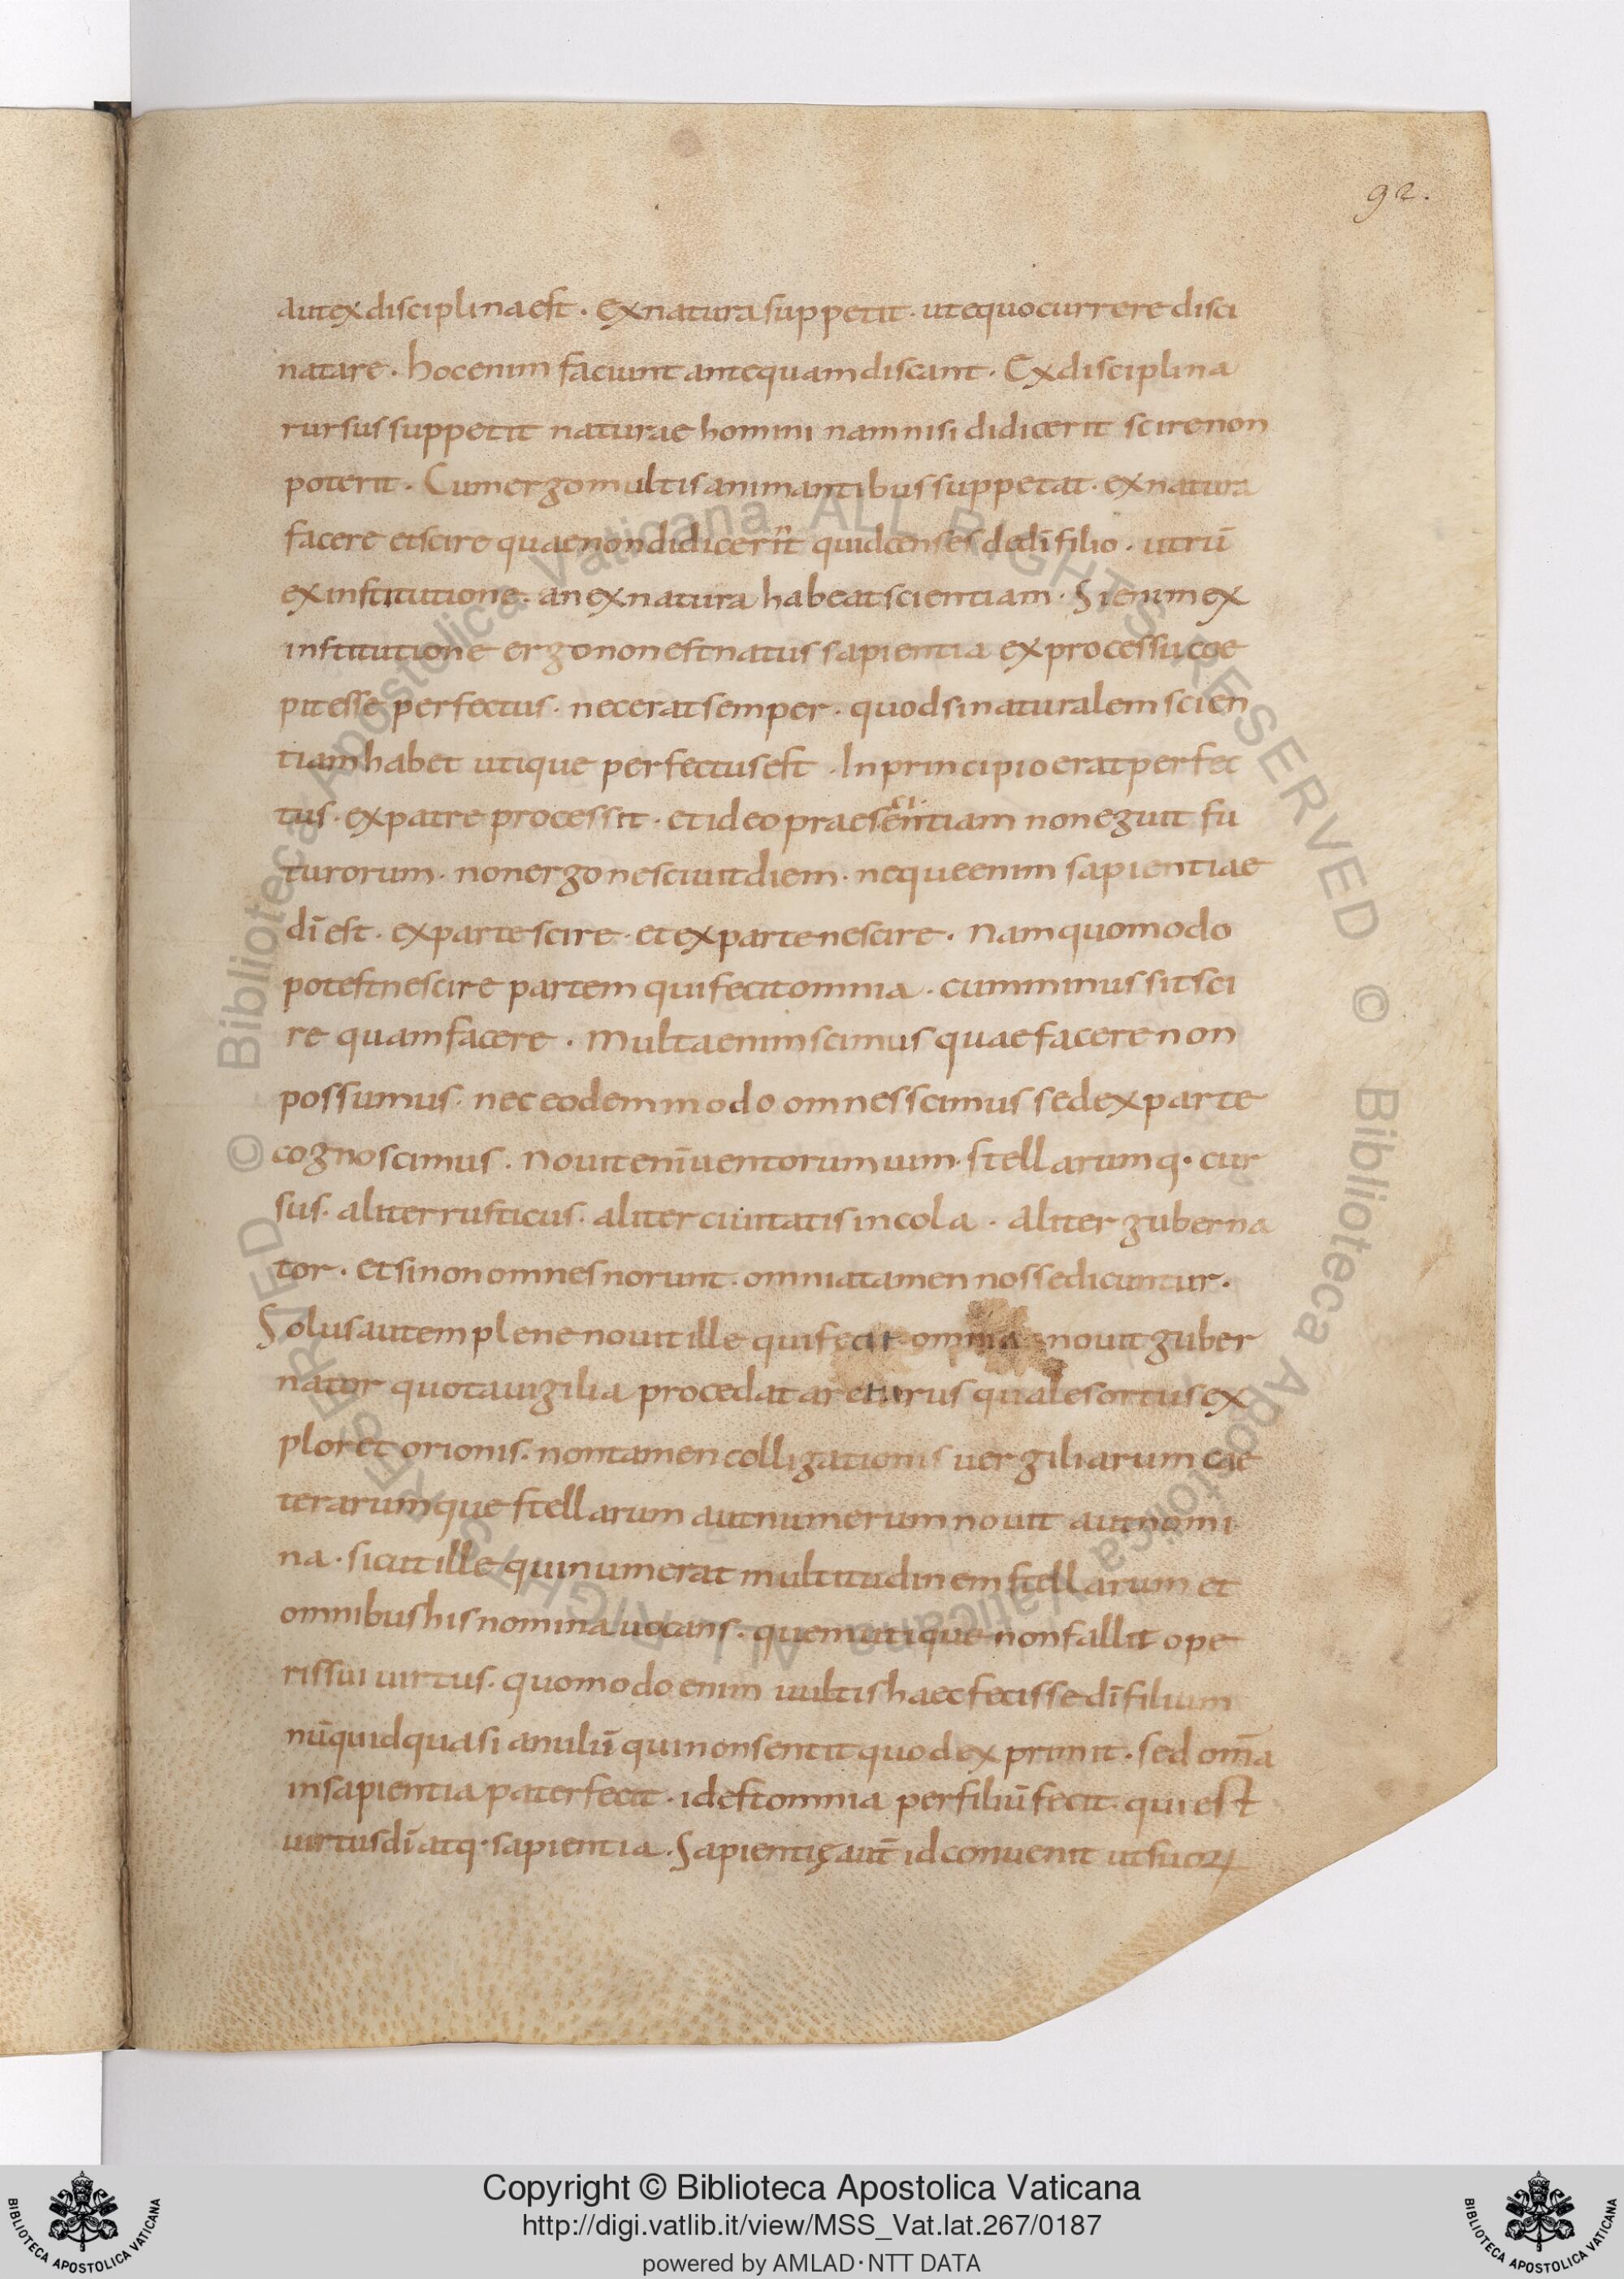 92.
aut ex disciplina est · ex natura suppetit · ut equo currere disci
natare · hoc enim faciunt antequam discant · Ex disciplina
rursus suppetit naturae homini nam nisi didicerit scire non
poterit · Cum ergo multis animantibus suppetat · ex natura
facere et scire quae non didicerint quid censes de dī filio · utrū
ex institutione · an ex natura habeat scientiam · Si enim ex
institutione ergo non est natus sapientia ex processu coe
pit esse perfectus · nec erat semper · quod si naturalem scien
tiam habet utique perfectus est · In principio erat perfec
tus · ex patre processit · et ideo praescientiam non eguit fu
turorum · non ergo nesciuit diem · neque enim sapientiae
dī est · ex parte scire · et ex parte nescire · Nam quomodo
potest nescire partem qui fecit omnia · cum minus sit sci
re quam facere · Multa enim scimus quae facere non
possumus · nec eodem modo omnes scimus sed ex parte
cognoscimus · Nouit enī uentorum uim · stellarumq· cur
sus · aliter rusticus · aliter ciuitatis incola · aliter guberna
tor · etsi non omnes norunt · omnia tamen nosse dicuntur ·
Solus autem plene nouit ille qui fecit omnia · nouit guber
nator quota uigilia procedat arcturus quales ortus ex
ploret orionis · non tamen colligationis uergiliarum cae
terarumque stellarum aut numerum nouit aut nomi
na · sicut ille qui numerat multitudinem stellarum et
omnibus his nomina uocans · quem utique non fallit ope
ris sui uirtus · quomodo enim uultis haec fecisse dī filium
nūquid quasi anulū qui non sentit quod exprimit · sed om̄a
in sapientia pater fecit · id est omnia per filiū fecit · qui est
uirtus dī atq· sapientia · Sapientię aut̄ id conuenit ut suoꝝ
Copyright © Biblioteca Apostolica Vaticana
http://digi.vatlib.it/view/MSS_Vat.lat.267/0187
powered by AMLAD · NTT DATA
BIBLIOTECA APOSTOLICA VATICANA
BIBLIOTECA APOSTOLICA VATICANA
© Biblioteca Apostolica Vaticana ALL RIGHTS RESERVED
© Biblioteca Apostolica Vaticana ALL RIGHTS RESERVED